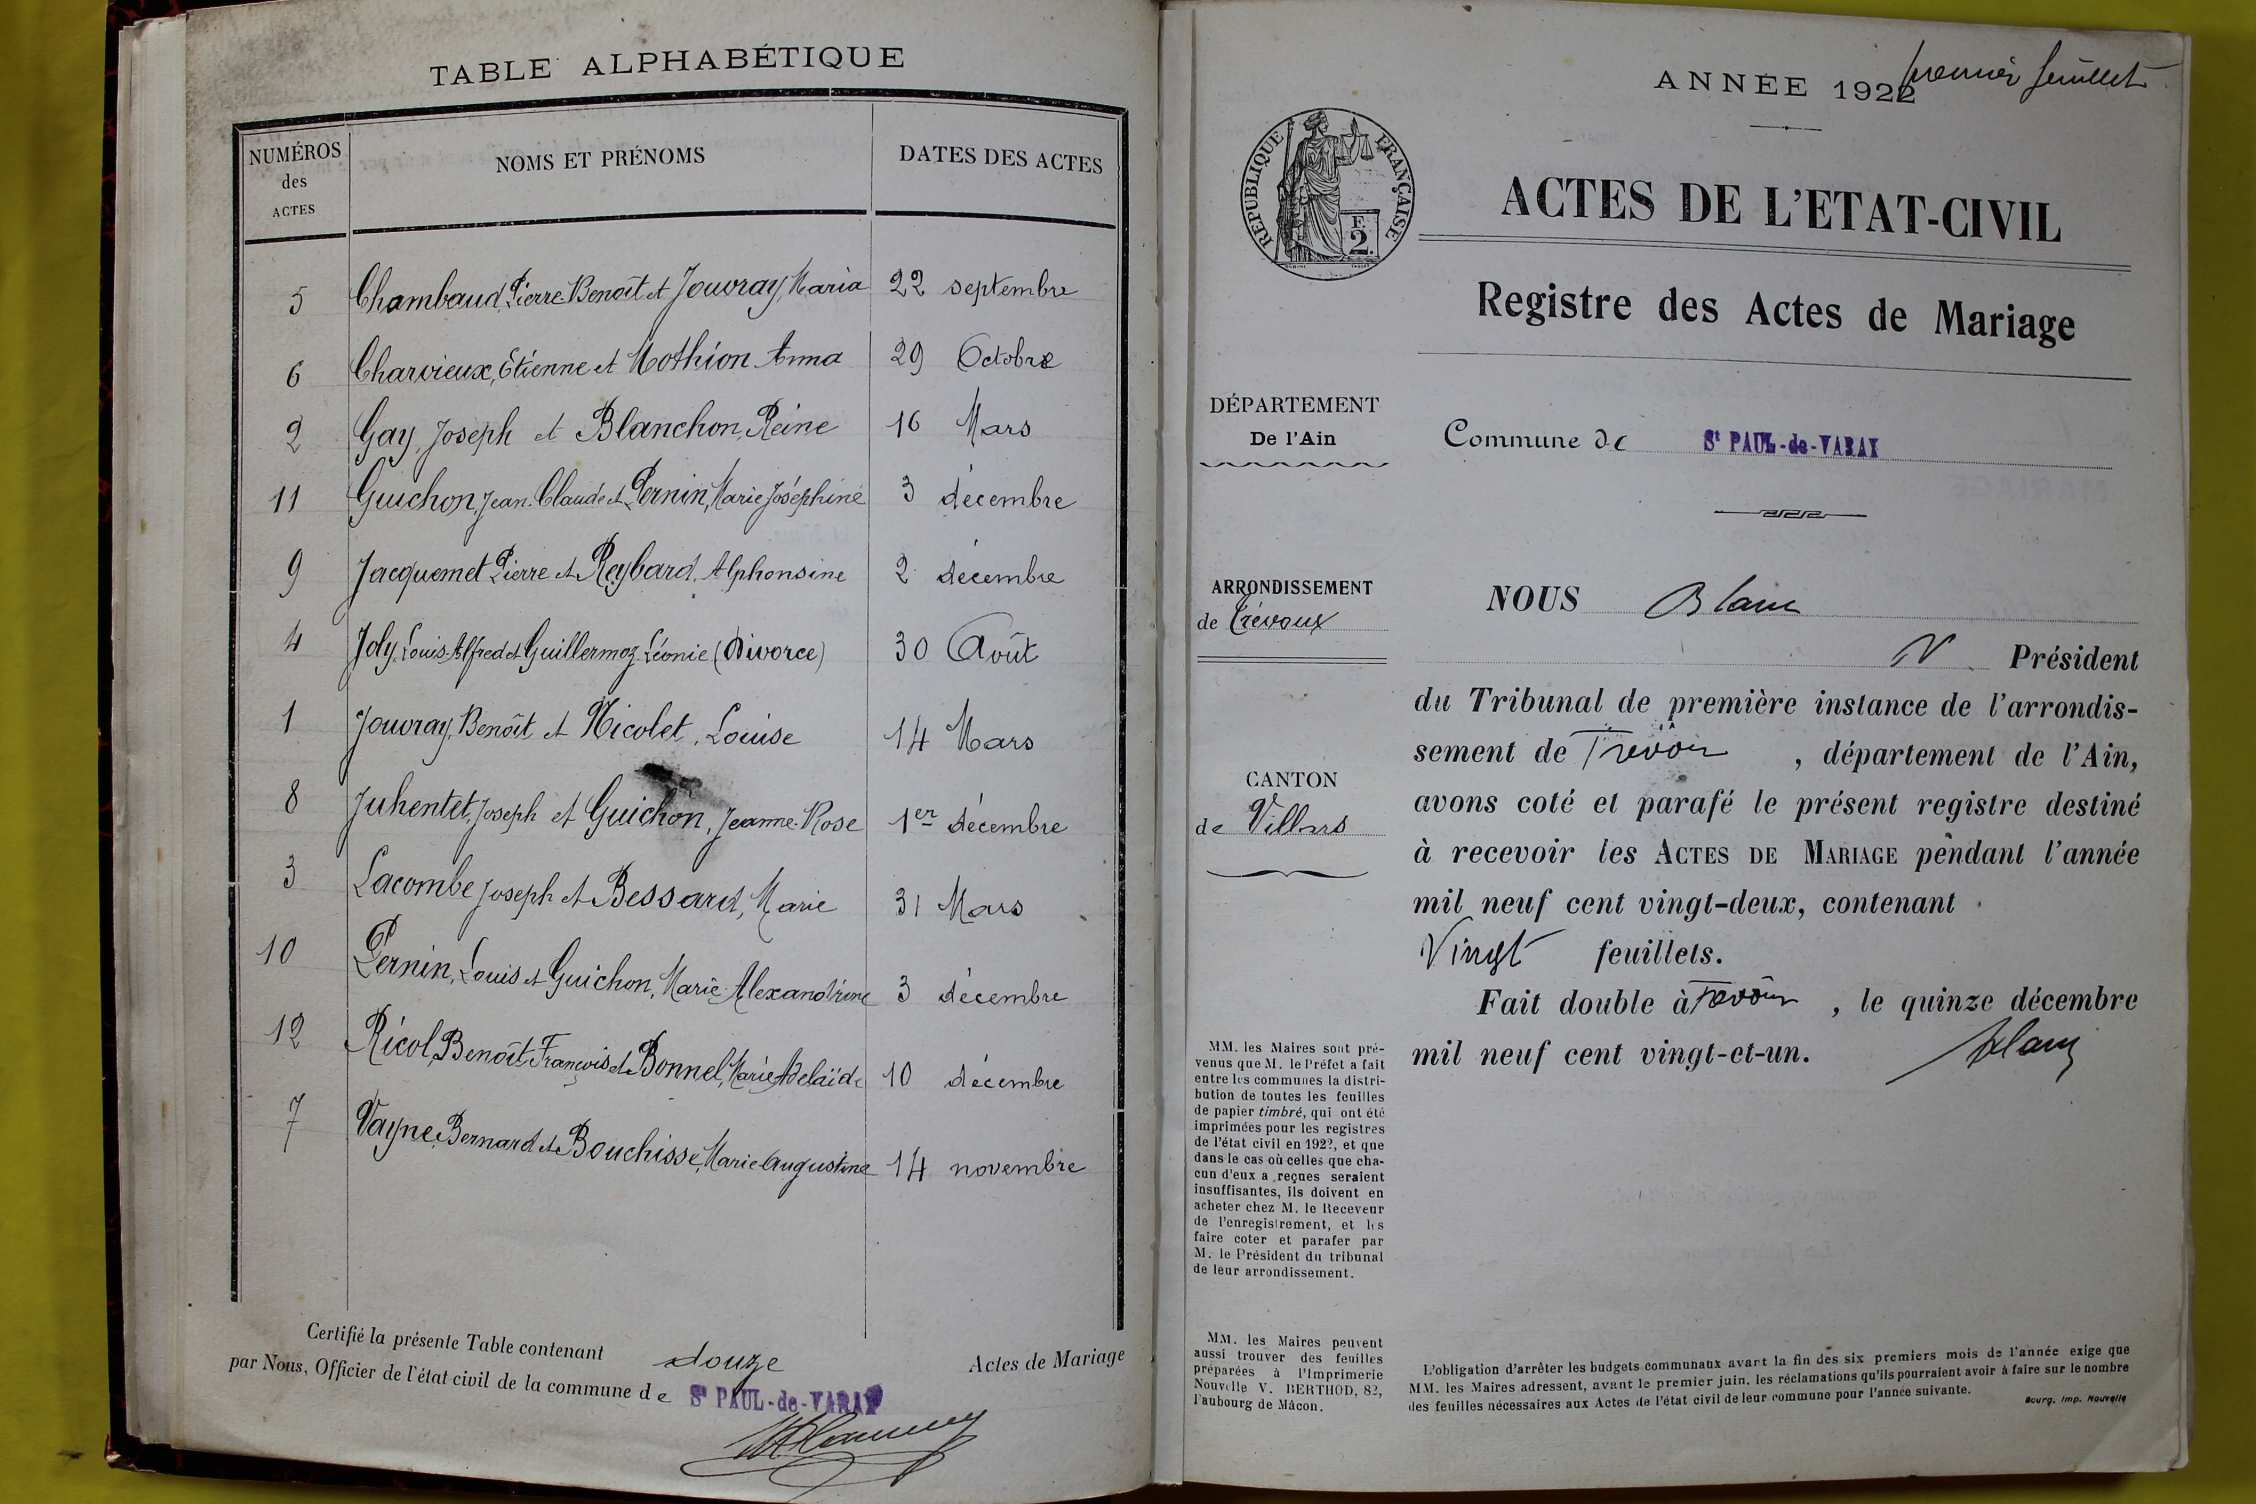 TABLE ALPHABÉTIQUE
NUMÉROS des ACTES NOMS ET PRÉNOMS DATES DES ACTES
5 Chambaud, Pierre-Benoît et Jouvray, Maria 22 septembre
6 Charvieux, Etienne et Mothion Anna 29 Octobre
2 Gay, Joseph et Blanchon, Reine 16 Mars
11 Guichon, Jean-Claude et Pernin, Marie Joséphine 3 décembre
9 Jacquemet Pierre et Reybard, Alphonsine 2 décembre
4 Joly, Louis-Alfred et Guillermoz Léonie (Divorce) 30 Août
1 Jouvray, Benoît et Nicolet, Louise 14 Mars
8 Juhentet, Joseph et Guichon, Jeanne-Rose 1er décembre
3 Lacombe Joseph et Bessard, Marie 31 Mars
10 Pernin, Louis et Guichon, Marie-Alexandrine 3 décembre
12 Ricol, Benoît-François et Bonnel, Marie Adelaïde 10 décembre
7 Vayne, Bernard et Bouchisse, Marie-Augustine 14 novembre
Certifié la présente Table contenant douze Actes de Mariage
par Nous, Officier de l'état civil de la commune de St PAUL-de-VARAX
premier feuillet
ANNÉE 1922
RÉPUBLIQUE FRANÇAISE
F. 2.
ACTES DE L'ETAT-CIVIL
Registre des Actes de Mariage
DÉPARTEMENT
De l'Ain
Commune de St PAUL-de-VARAX
ARRONDISSEMENT
de Trévoux
CANTON
de Villars
NOUS Blanc
Président
du Tribunal de première instance de l'arrondis-
sement de Trévoux, département de l'Ain,
avons coté et parafé le présent registre destiné
à recevoir les ACTES DE MARIAGE pendant l'année
mil neuf cent vingt-deux, contenant
Vingt feuillets.
Fait double à Trévoux, le quinze décembre
mil neuf cent vingt-et-un.
Blanc
MM. les Maires sont pré-
venus que M. le Préfet a fait
entre les communes la distri-
bution de toutes les feuilles
de papier timbré, qui ont été
imprimées pour les registres
de l'état civil en 1922, et que
dans le cas où celles que cha-
cun d'eux a reçues seraient
insuffisantes, ils doivent en
acheter chez M. le Receveur
de l'enregistrement, et les
faire coter et parafer par
M. le Président du tribunal
de leur arrondissement.
MM. les Maires peuvent
aussi trouver des feuilles
préparées à l'Imprimerie
Nouvelle V. BERTHOD, 82,
faubourg de Mâcon.
L'obligation d'arrêter les budgets communaux avant la fin des six premiers mois de l'année exige que
MM. les Maires adressent, avant le premier juin, les réclamations qu'ils pourraient avoir à faire sur le nombre
des feuilles nécessaires aux Actes de l'état civil de leur commune pour l'année suivante.
Bourg, Imp. Nouvelle